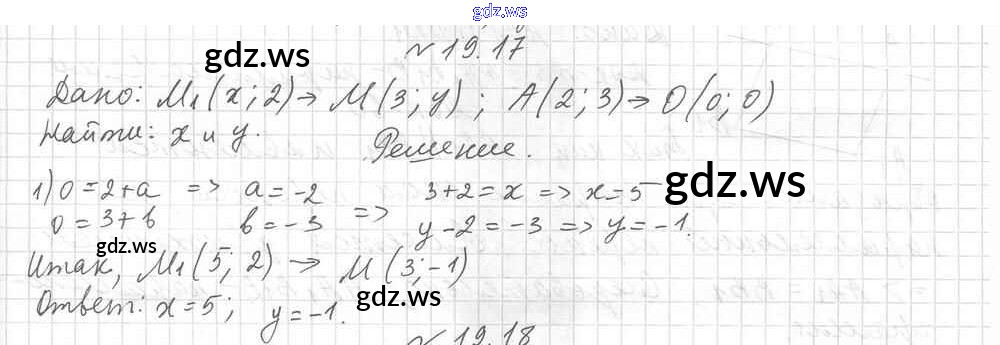 gdz.ws
№ 19.17
gdz.ws
Дано: M₁(x; 2) → M(3; y); A(2; 3) → O(0; 0)
Найти: x и y.
Решение.
1) 0 = 2 + a => a = -2 3 + 2 = x => x = 5
0 = 3 + b b = -3 => y - 2 = -3 => y = -1.
gdz.ws
gdz.ws
Итак, M₁(5; 2) → M(3; -1)
gdz.ws
Ответ: x = 5; y = -1.
№ 19.18